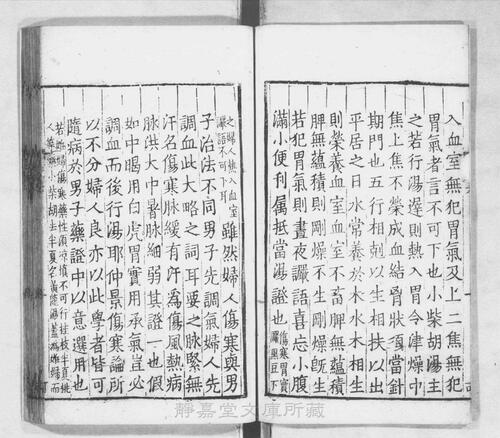 入血室無犯胃氣及上二焦無犯
胃氣者言不可下也小柴胡湯主
之若行湯遲則熱入胃令津燥中
焦上焦不榮成血結胷狀須當針
期門也五行相剋以生相扶以出
平居之日水常養於木水木相生
則榮養血室血室不畜脾無蘊積
脾無蘊積則剛燥不生剛燥旣生
若犯胃氣則晝夜讝語喜忘小腹
滿小便利属抵當湯證也
傷寒胃實
讝語宜下
之婦人熱入血室
讝語不可下耳
雖然婦人傷寒與男
子治法不同男子先調氣婦人先
調血此大略之詞耳要之脉緊無
汗名傷寒脉緩有汗爲傷風熱病
脉洪大中暑脉細弱其證一也假
如中暍用白虎胃實用承氣豈必
調血而後行湯耶仲景傷寒論所
以不分婦人良亦以此學者皆可
隨病於男子藥證中以意選用也
若妊婦傷寒藥性須凉愼不可行桂枝半夏桃
人等小柴胡去半夏名黃龍湯盖爲妊婦而
靜嘉堂文庫所藏